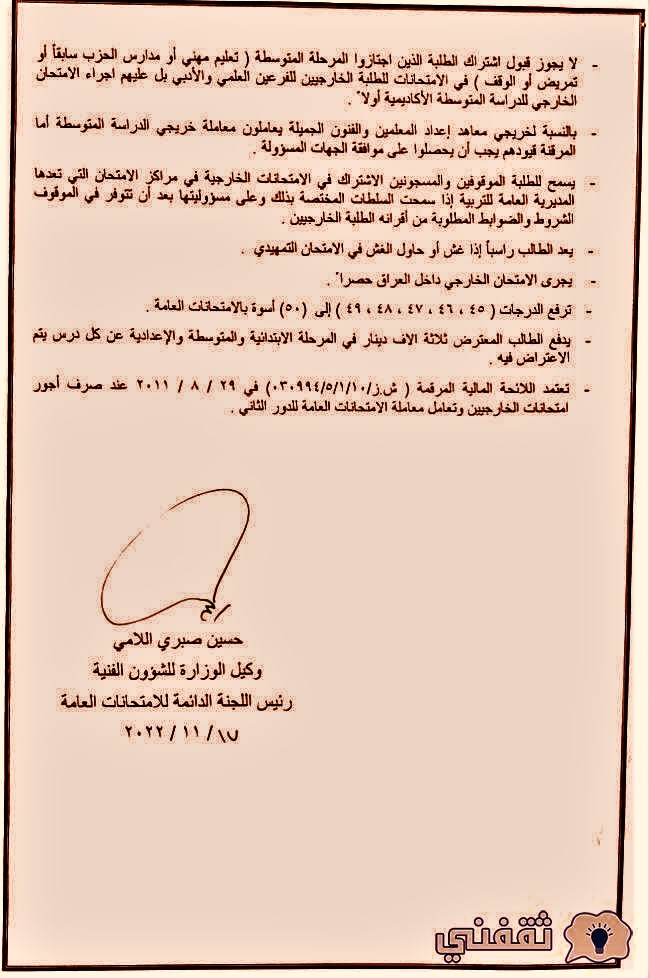 - لا يجوز قبول اشتراك الطلبة الذين اجتازوا المرحلة المتوسطة ( تعليم مهني أو مدارس الحزب سابقاً أو
تمريض أو الوقف ) في الامتحانات للطلبة الخارجيين للفرعين العلمي والأدبي بل عليهم اجراء الامتحان
الخارجي للدراسة المتوسطة الأكاديمية أولاً .
- بالنسبة لخريجي معاهد إعداد المعلمين والفنون الجميلة يعاملون معاملة خريجي الدراسة المتوسطة أما
المرقنة قيودهم يجب أن يحصلوا على موافقة الجهات المسؤولة .
- يسمح للطلبة الموقوفين والمسجونين الاشتراك في الامتحانات الخارجية في مراكز الامتحان التي تعدها
المديرية العامة للتربية إذا سمحت السلطات المختصة بذلك وعلى مسؤوليتها بعد أن تتوفر في الموقوف
الشروط والضوابط المطلوبة من أقرانه الطلبة الخارجيين .
- يعد الطالب راسباً إذا غش أو حاول الغش في الامتحان التمهيدي .
- يجرى الامتحان الخارجي داخل العراق حصراً .
- ترفع الدرجات ( ٤٥ ، ٤٦ ، ٤٧ ، ٤٨ ، ٤٩ ) إلى (٥٠) أسوة بالامتحانات العامة .
- يدفع الطالب المعترض ثلاثة الاف دينار في المرحلة الابتدائية والمتوسطة والإعدادية عن كل درس يتم
الاعتراض فيه .
- تعتمد اللائحة المالية المرقمة ( ش.ز/٠٣٠٩٩٤/٥/١/١٠) في ٢٩ / ٨ / ٢٠١١ عند صرف أجور
امتحانات الخارجيين وتعامل معاملة الامتحانات العامة للدور الثاني .
حسين صبري اللامي
وكيل الوزارة للشؤون الفنية
رئيس اللجنة الدائمة للامتحانات العامة
١٧/ ١١ / ٢٠٢٢
ثقفني